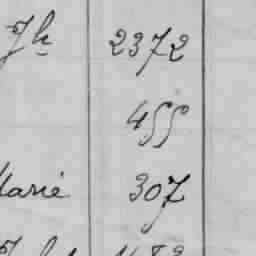 Jh 2372
455
Marie 307